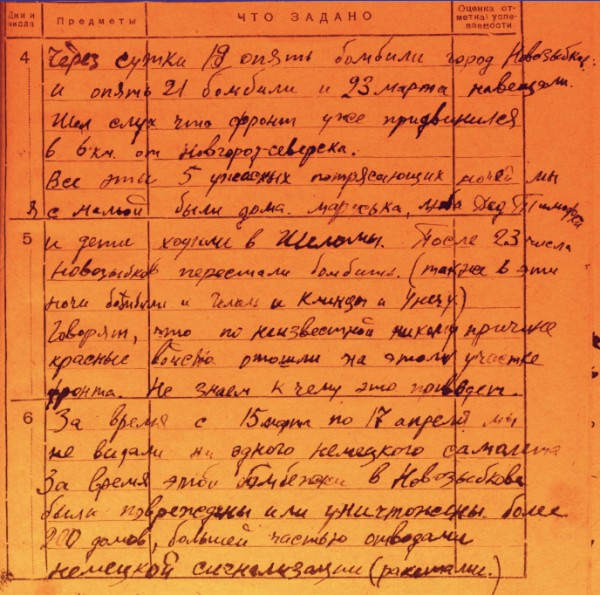 Дни и числа
Предметы
ЧТО ЗАДАНО
Оценка отметка успеваемости
4
Через сутки 19 опять бомбили город Новозыбков.
и опять 21 бомбили и 23 марта навещали.
Шел слух что фронт уже придвинился
в 6 км. от Новгород-северска.
Все эти 5 ужасных потрясающих ночей мы
я с мамой были дома. маруська, люба Дед Тимофка
5
и дети ходили в Шеломы. После 23 числа
Новозыбков перестали бомбить. (также в эти
ночи бомбили и Гомель и Клинцы и Унечу)
Говорят, что по неизвестной никому причине
красные войска отошли на этом участке
фронта. Не знаем к чему это приведет.
6
За время с 15 марта по 17 апреля мы
не видали ни одного немецкого самалета
За время этой бомбежки в Новозыбкове
были повреждены или уничтожены более
200 домов, большей частью отводами
немецкой сигнализации (ракетами.)